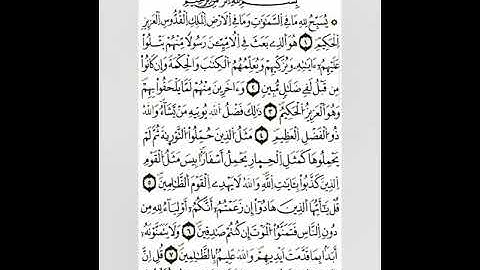 يُسَبِّحُ لِلهِ مَا فِي السَّمَٰوَٰتِ وَمَا فِي الْأَرْضِ الْمَلِكِ الْقُدُّوسِ الْعَزِيزِ
الْحَكِيمِ ١ هُوَ الَّذِي بَعَثَ فِي الْأُمِّيِّينَ رَسُولًا مِّنْهُمْ يَتْلُوا
عَلَيْهِمْ ءَايَٰتِهِ وَيُزَكِّيهِمْ وَيُعَلِّمُهُمُ الْكِتَٰبَ وَالْحِكْمَةَ وَإِن كَانُوا
مِن قَبْلُ لَفِي ضَلَٰلٍ مُّبِينٍ ٢ وَءَاخَرِينَ مِنْهُمْ لَمَّا يَلْحَقُوا بِهِمْ
وَهُوَ الْعَزِيزُ الْحَكِيمُ ٣ ذَٰلِكَ فَضْلُ اللَّهِ يُوتِيهِ مَن يَشَاءُ وَاللَّهُ
ذُو الْفَضْلِ الْعَظِيمِ ٤ مَثَلُ الَّذِينَ حُمِّلُوا التَّوْرَيٰةَ ثُمَّ لَمْ
يَحْمِلُوهَا كَمَثَلِ الْحِمَارِ يَحْمِلُ أَسْفَارًا بِيسَ مَثَلُ الْقَوْمِ
الَّذِينَ كَذَّبُوا بِـَٔايَٰتِ اللَّهِ وَاللَّهُ لَا يَهْدِي الْقَوْمَ الظَّٰلِمِينَ ٥
قُلْ يَٰأَيُّهَا الَّذِينَ هَادُوا إِن زَعَمْتُمْ أَنَّكُمْ أَوْلِيَاءُ لِلهِ مِن
دُونِ النَّاسِ فَتَمَنَّوُا الْمَوْتَ إِن كُنتُمْ صَٰدِقِينَ ٦ وَلَا يَتَمَنَّوْنَهُ
أَبَدًا بِمَا قَدَّمَتْ أَيْدِيهِمْ وَاللَّهُ عَلِيمٌ بِالظَّٰلِمِينَ ٧ قُلْ إِنَّ